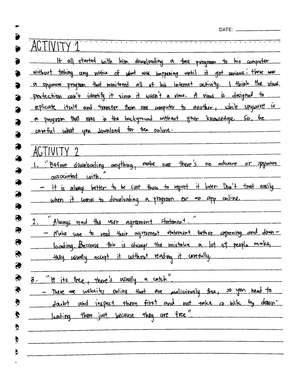 DATE:
ACTIVITY 1
It all started with him downloading a free program to his computer
without taking any notice of what was happening until it got serious. There was
a spyware program that monitored all of his internet activity. I think the virus
protection can't identify it since it wasn't a virus. A virus is designed to
replicate itself and transfer from one computer to another, while spyware is
a program that runs in the background without your knowledge. So, be
careful what you download for free online.
ACTIVITY 2
1. "Before downloading anything, make sure there's no adware or spyware
associated with."
- It is always better to be safe than to regret it later. Don't trust easily
when it comes to downloading a program or an app online.
2. "Always read the user agreement statement."
- Make sure to read their agreement statement before agreeing and down-
loading. Because this is always the mistake a lot of people make,
they usually accept it without reading it carefully.
3. "If its free, there's usually a catch"
- There are websites online that are maliciously free, so you need to
doubt and inspect them first and not take a bite by down-
loading them just because they are free"